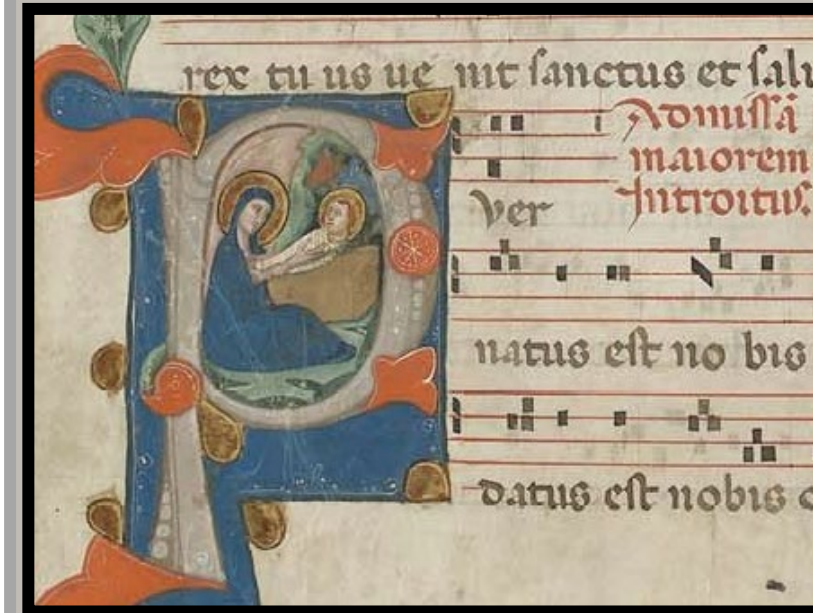 rex tu us ue nit sanctus et salu
Ad missā
maiorem
Introitus.
P
Ver
natus est no bis
datus est nobis